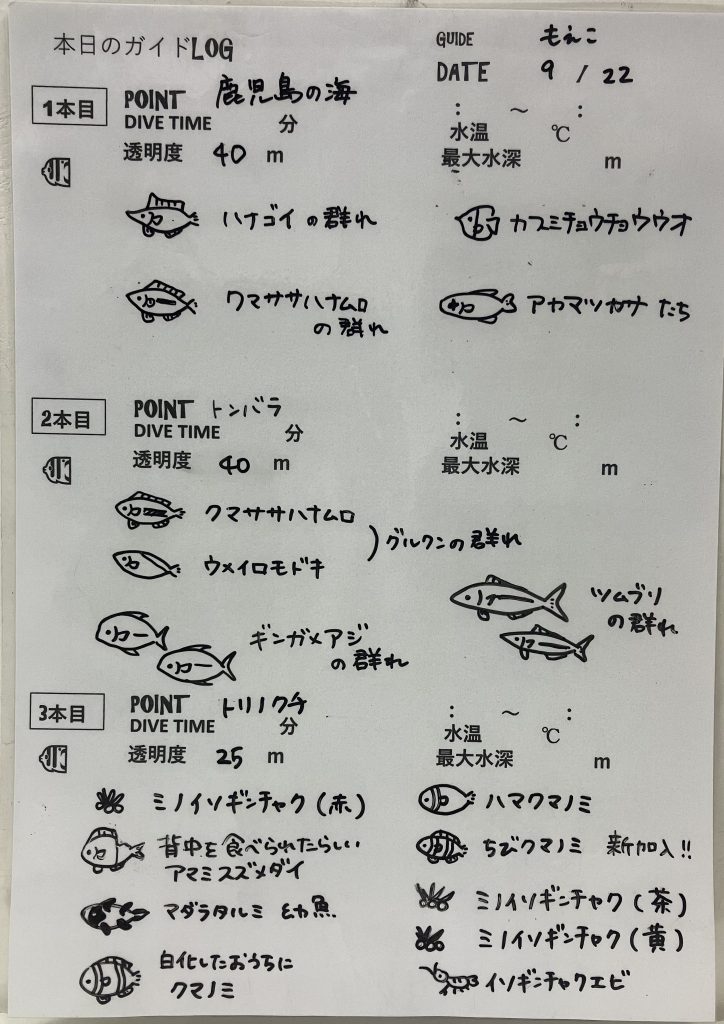 本日のガイドLOG
GUIDE もえこ
DATE 9 / 22
1本目
POINT 鹿児島の海
DIVE TIME 分
: ~ :
水温 ℃
透明度 40 m
最大水深 m
ハナゴイの群れ
カスミチョウチョウウオ
クマササハナムロ
の群れ
アカマツカサたち
2本目
POINT トンバラ
DIVE TIME 分
: ~ :
水温 ℃
透明度 40 m
最大水深 m
クマササハナムロ
ウメイロモドキ
グルクンの群れ
ツムブリ
の群れ
ギンガメアジ
の群れ
3本目
POINT トリノクチ
DIVE TIME 分
: ~ :
水温 ℃
透明度 25 m
最大水深 m
ミノイソギンチャク(赤)
ハマクマノミ
背中を食べられたらしい
アマミスズメダイ
ちびクマノミ 新加入!!
マダラタルミ 幼魚
ミノイソギンチャク(茶)
ミノイソギンチャク(黄)
白化したおうちに
クマノミ
イソギンチャクエビ